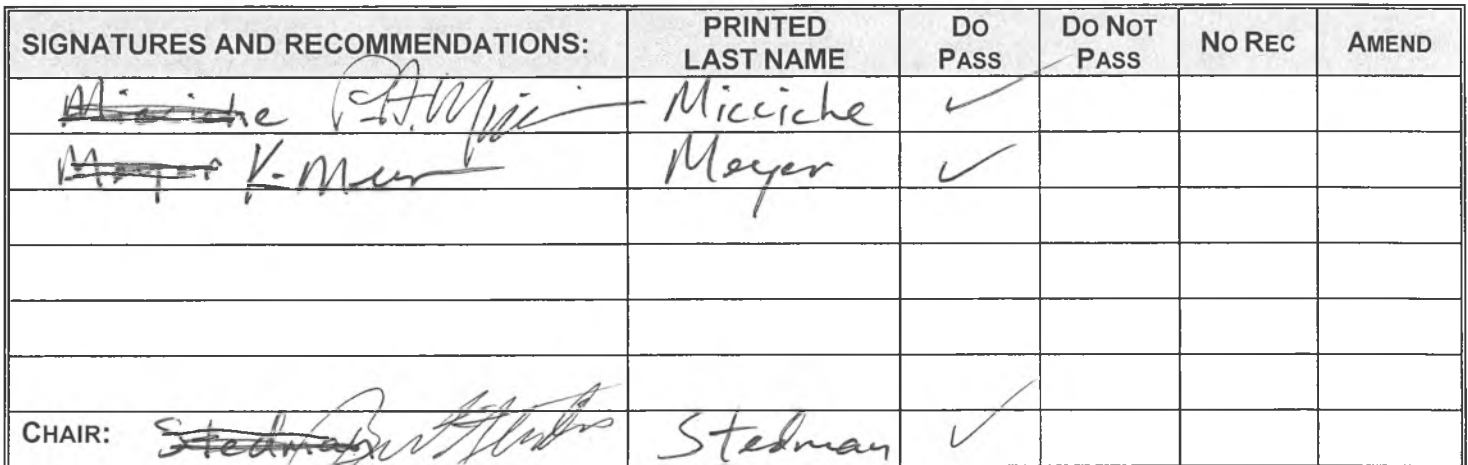 SIGNATURES AND RECOMMENDATIONS: PRINTED LAST NAME DO PASS DO NOT PASS NO REC AMEND
Micciche Micciche ✓
Meyer K. Meyer ✓
CHAIR: Stedman Stedman ✓